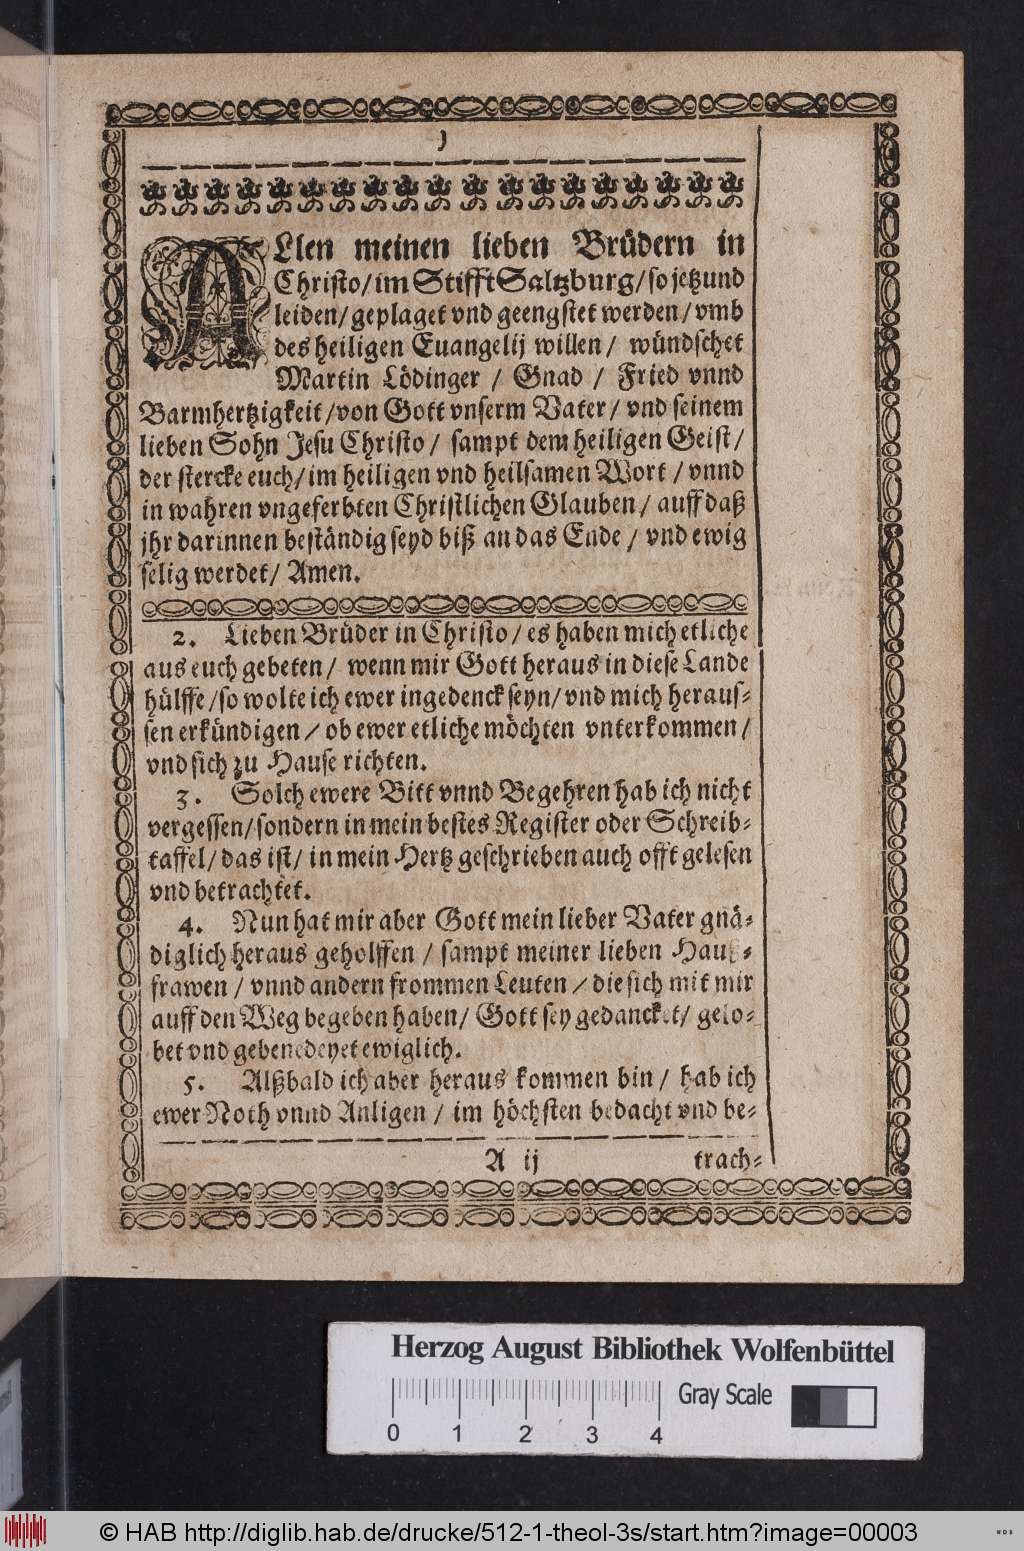 1
ALlen meinen lieben Brüdern in
Christo/im Stifft Saltzburg/so jetzund
leiden/geplaget vnd geengstet werden/vmb
des heiligen Euangelij willen/ wündschet
Martin Lödinger / Gnad / Fried vnnd
Barmhertzigkeit/von Gott vnserm Vater/ vnd seinem
lieben Sohn Jesu Christo/ sampt dem heiligen Geist/
der stercke euch/im heiligen vnd heilsamen Wort / vnnd
in wahren vngeferbten Christlichen Glauben/ auff daß
jhr darinnen beständig seyd biß an das Ende / vnd ewig
selig werdet/ Amen.
2. Lieben Brüder in Christo/ es haben mich etliche
aus euch gebeten/ wenn mir Gott heraus in diese Lande
hülffe/so wolte ich ewer ingedenck seyn/vnd mich heraus-
sen erkündigen/ ob ewer etliche möchten vnterkommen/
vnd sich zu Hause richten.
3. Solch ewere Bitt vnnd Begehren hab ich nicht
vergessen/sondern in mein bestes Register oder Schreib-
taffel/das ist/ in mein Hertz geschrieben auch offt gelesen
vnd betrachtet.
4. Nun hat mir aber Gott mein lieber Vater gnä-
diglich heraus geholffen / sampt meiner lieben Hauß-
frawen / vnnd andern frommen Leuten / die sich mit mir
auff den Weg begeben haben/ Gott sey gedancket/ gelo-
bet vnd gebenedeyet ewiglich.
5. Alßbald ich aber heraus kommen bin / hab ich
ewer Noth vnnd Anligen / im höchsten bedacht vnd be-
A ij trach-
Herzog August Bibliothek Wolfenbüttel
Gray Scale
0 1 2 3 4
© HAB http://diglib.hab.de/drucke/512-1-theol-3s/start.htm?image=00003